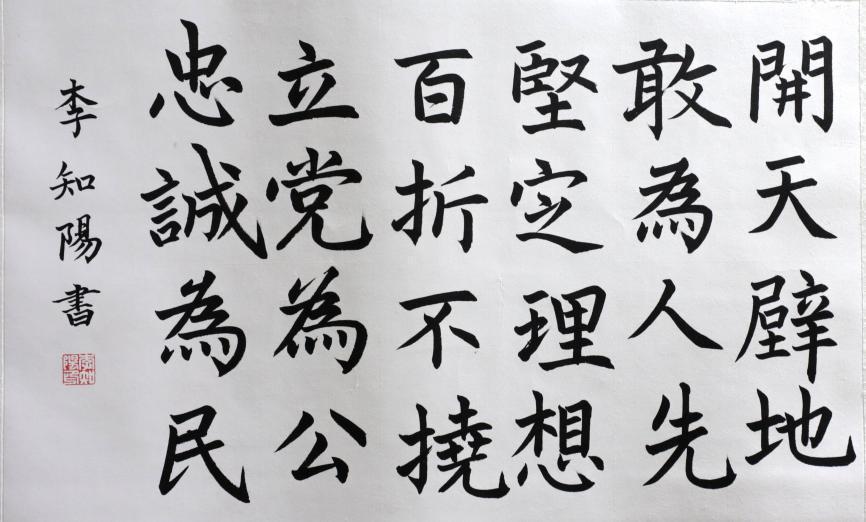 開天壁地
敢為人先
堅定理想
百折不撓
立党為公
忠誠為民
李知陽書